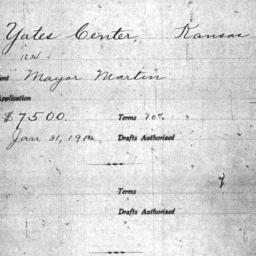 Yates Center, Kansas
ent Mayor Martin
Application
$7500. Terms 10%
Jan 31, 191 Drafts Authorized
Terms
Drafts Authorized